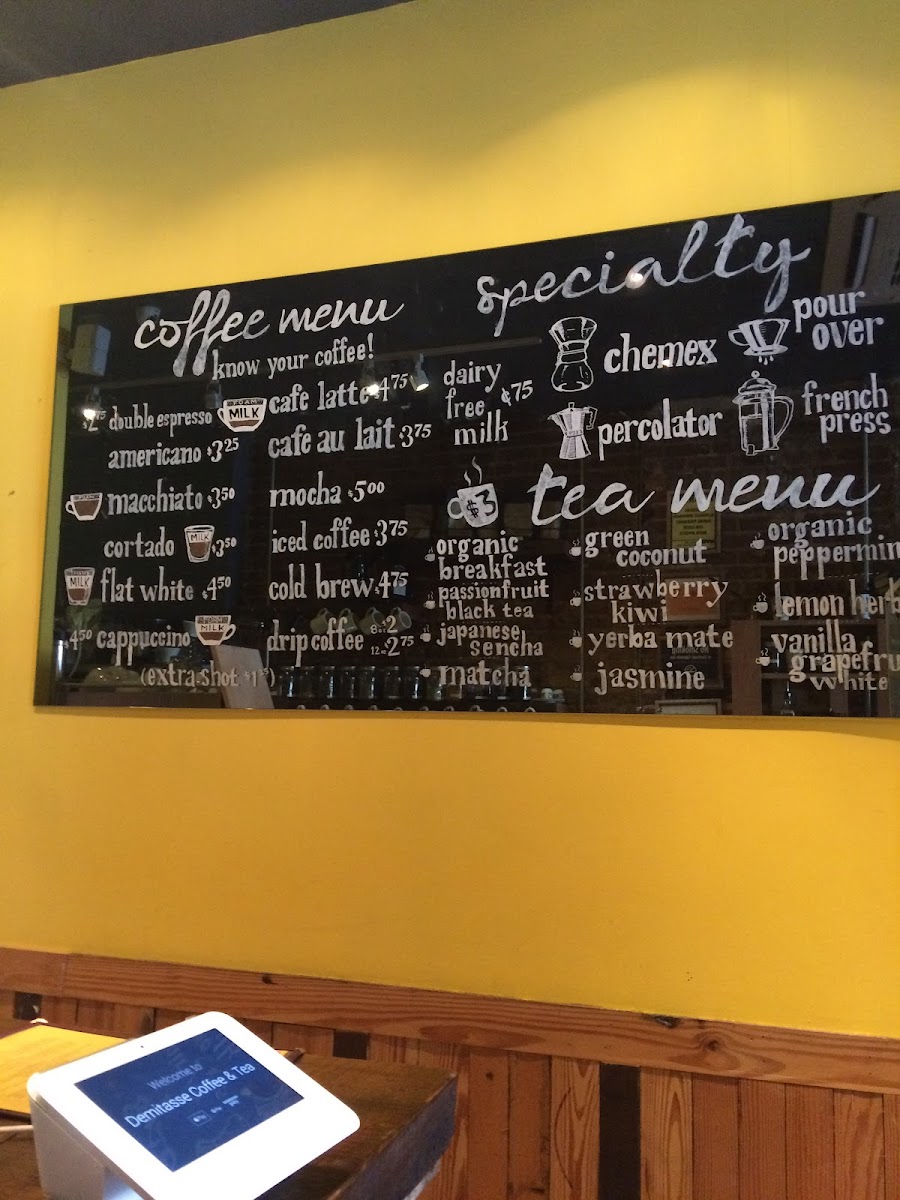 coffee menu
know your coffee!
$2.75 double espresso
FOAM
MILK
americano $3.25
macchiato $3.50
cortado
MILK
$3.50
MILK
flat white $4.50
$4.50 cappuccino
FOAM
MILK
(extra shot
cafe latte $4.75
cafe au lait $3.75
mocha $5.00
iced coffee $3.75
cold brew $4.75
drip coffee 8oz $2
12oz $2.75
dairy
free $.75
milk
specialty
chemex
pour
over
percolator
french
press
$3
tea menu
organic
breakfast
passionfruit
black tea
japanese
sencha
matcha
green
coconut
strawberry
kiwi
yerba mate
jasmine
organic
peppermin
lemon herb
vanilla
grapefru
white
Welcome to
Demitasse Coffee & Tea